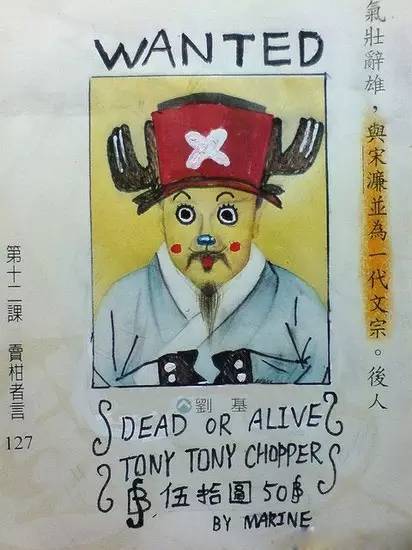 WANTED
氣壯辭雄，與宋濂並為一代文宗。後人
劉基
DEAD OR ALIVE
TONY TONY CHOPPER
฿ 伍拾圓 50฿
BY MARINE
第十二課 賣柑者言
127